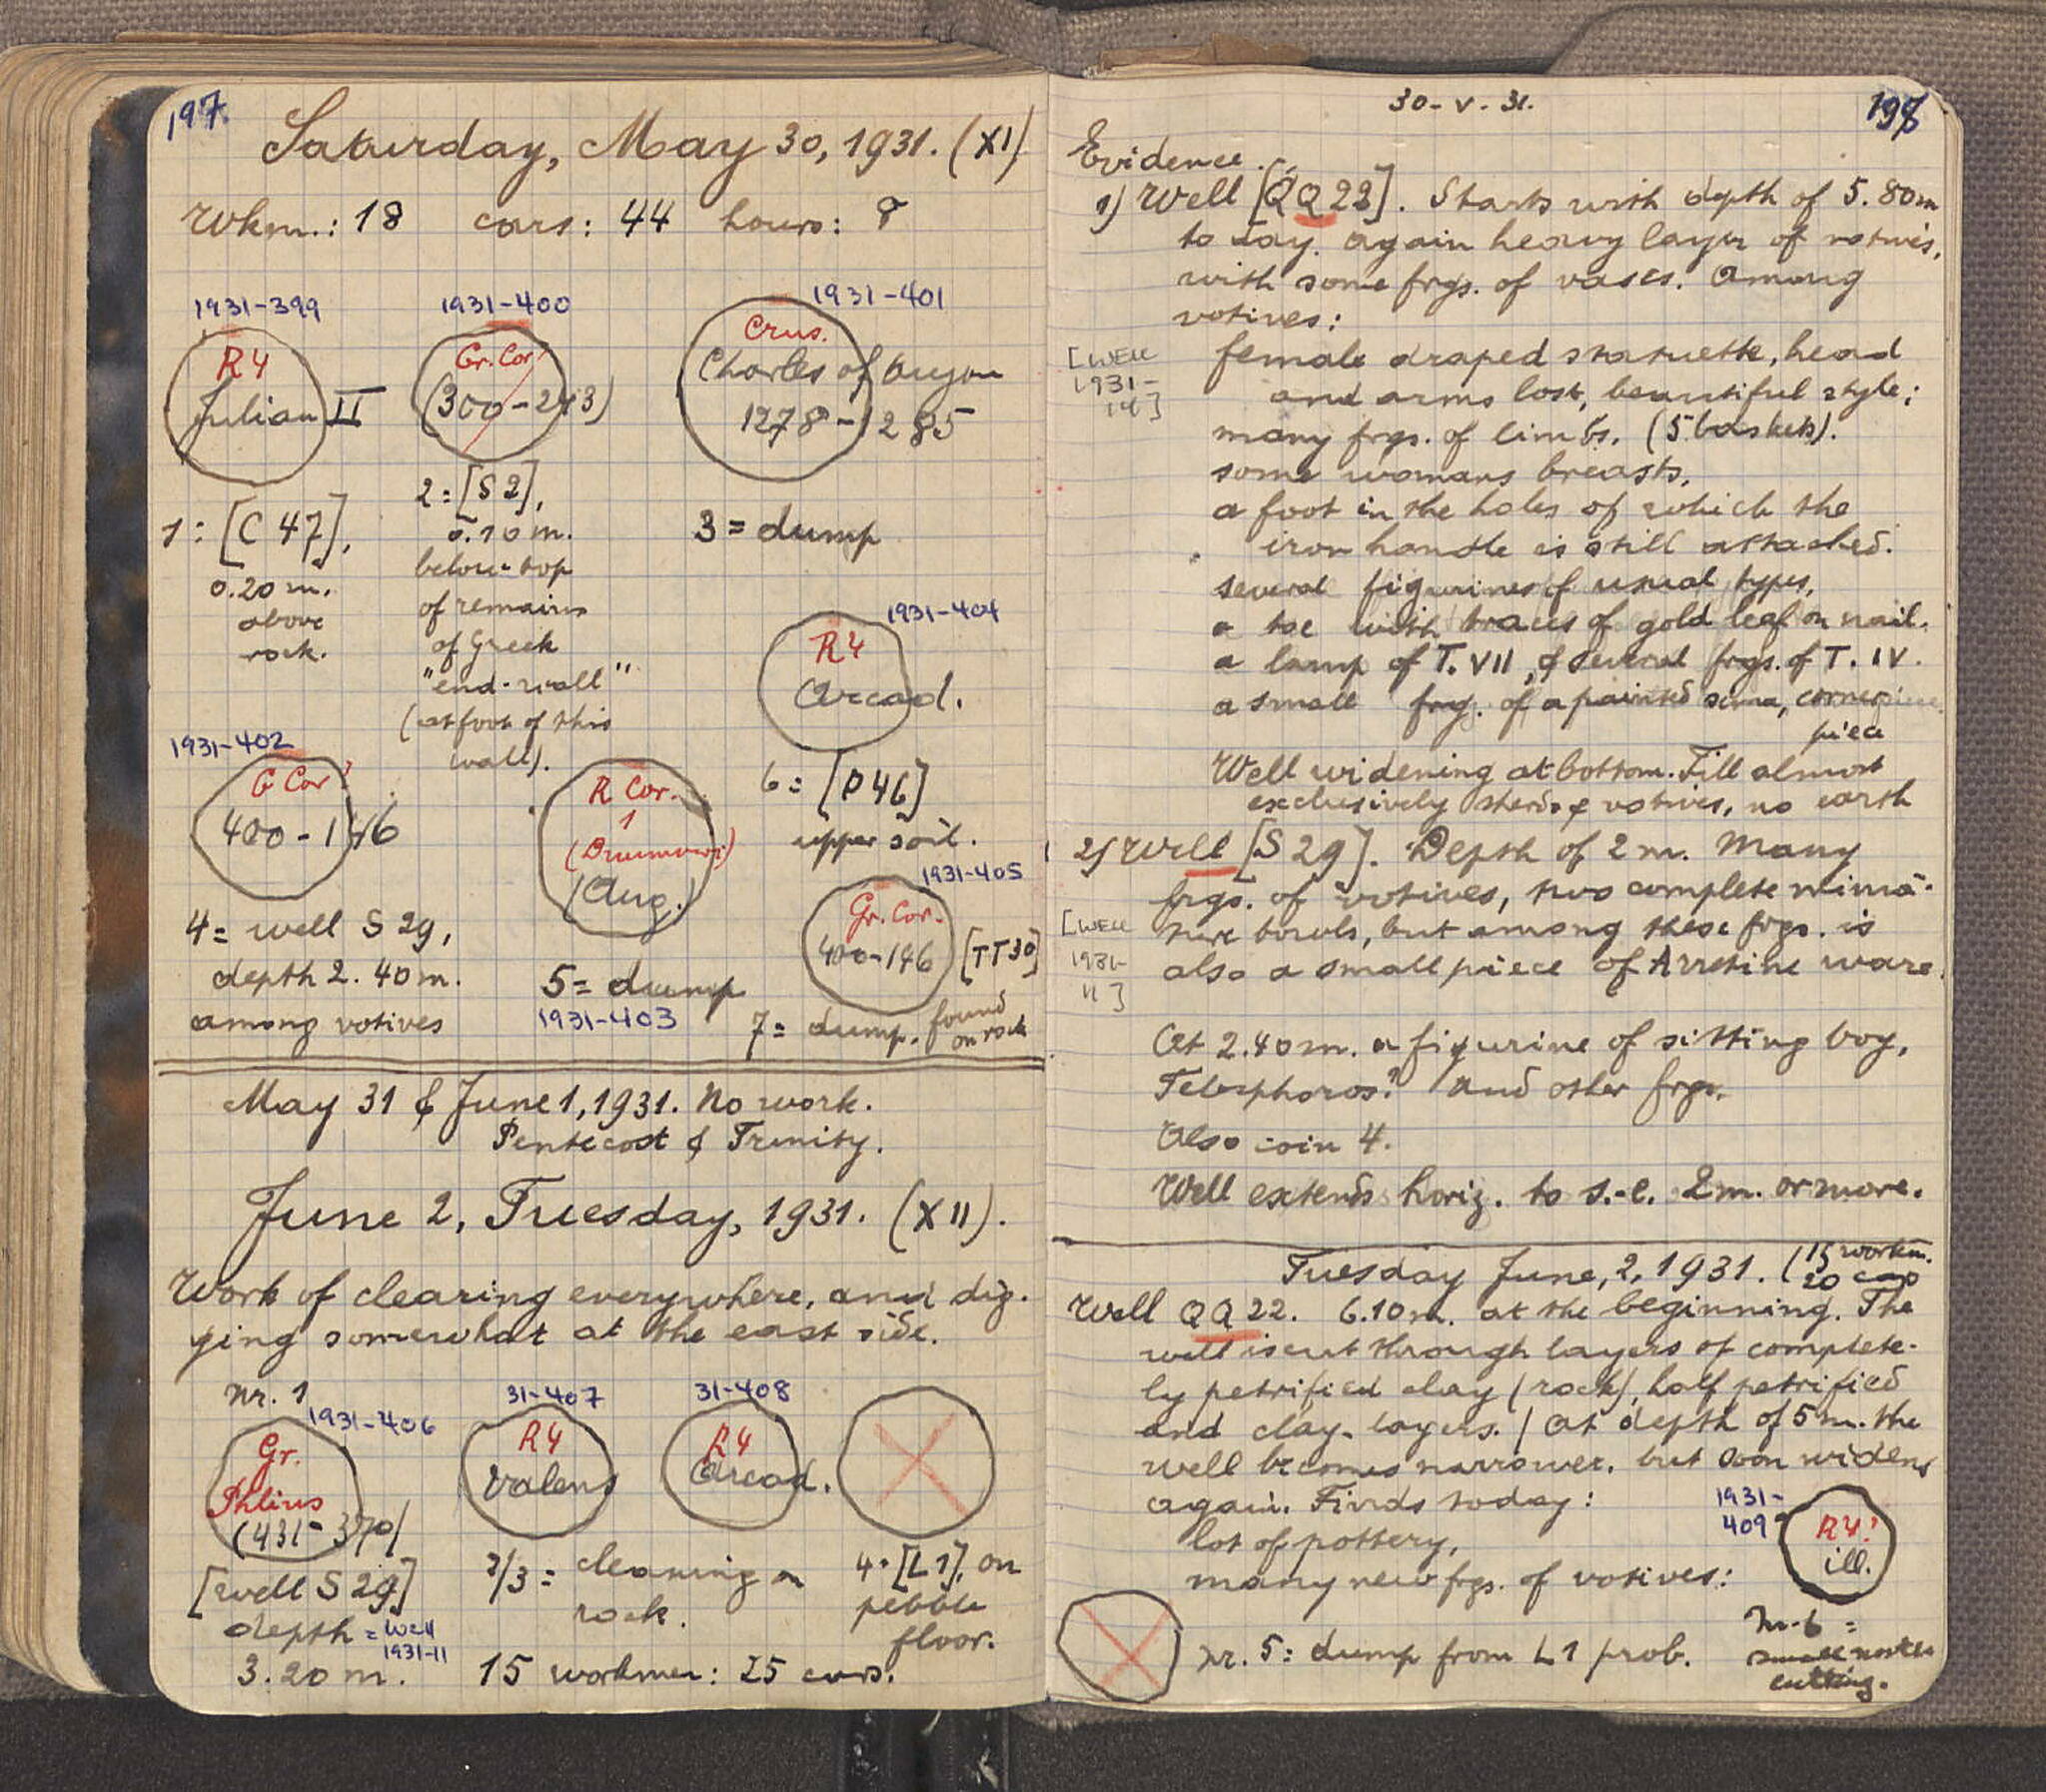 197
Saturday, May 30, 1931. (XI)
Wkm.: 18 cars: 44 hours: 8
1931-399
R4
Julian II
1: [C 47],
0.20 m.
above
rock.
1931-400
Gr. Cor
(300-243)
2=[S2],
0.10 m.
below top
of remains
of Greek
"end-wall"
(at foot of this
wall).
1931-401
Crus.
Charles of Anjou
1278-1285
3 = dump
1931-402
G Cor
400-146
4= well S 29,
depth 2.40 m.
among votives
R Cor.
1
(Drummvir)
(Aug.)
5= dump
1931-403
1931-404
R4
Arcad.
6= [P46]
upper soil.
1931-405
Gr. Cor.
400-146 [TT30]
7= dump, found
on rock
May 31 & June 1, 1931. No work.
Pentecost & Trinity.
June 2, Tuesday, 1931. (XII).
Work of clearing everywhere, and dig-
ging somewhat at the east side.
Nr. 1
1931-406
Gr.
Phlius
(431-370)
[well S 29]
depth = Well
1931-11
3.20 m.
31-407
R4
Valens
31-408
R4
Arcad.
2/3 = cleaning on
rock.
4=[L1], on
pebble
floor.
15 workmen: 25 cars.
30-V-31.
198
Evidence.
1) Well [QQ22]. Starts with depth of 5.80m
to day. Again heavy layer of votives,
with some frgs. of vases. Among
votives:
[WELL
1931-
14]
female draped statuette, head
and arms lost, beautiful style;
many frgs. of limbs. (5 baskets).
some womans breasts,
a foot in the holes of which the
iron handle is still attached.
several figurines of usual types,
a toe with traces of gold leaf on nail.
a lamp of T. VII, & several frgs. of T. IV.
a small frg. of a painted sima, corner
piece
Well widening at bottom. Fill almost
exclusively sherds & votives, no earth
2) Well [S 29]. Depth of 2 m. Many
frgs. of votives, two complete minia-
ture bowls, but among these frgs. is
also a small piece of Arretine ware.
[WELL
1931-
11]
At 2.40 m. a figurine of sitting boy,
Telesphoros? And other frgs.
Also coin 4.
Well extends horiz. to s.-e. 2 m. or more.
Tuesday June, 2, 1931. (15 workm.
20 cars
Well QQ22. 6.10 m. at the beginning. The
well is cut through layers of complete-
ly petrified clay (rock), half petrified
and clay-layers. / At depth of 5 m. the
well becomes narrower, but soon widens
again. Finds today:
lot of pottery,
many new frgs. of votives:
1931-
409
R4?
ill.
Nr. 5: dump from L1 prob.
Nr. 6 =
small
cutting.